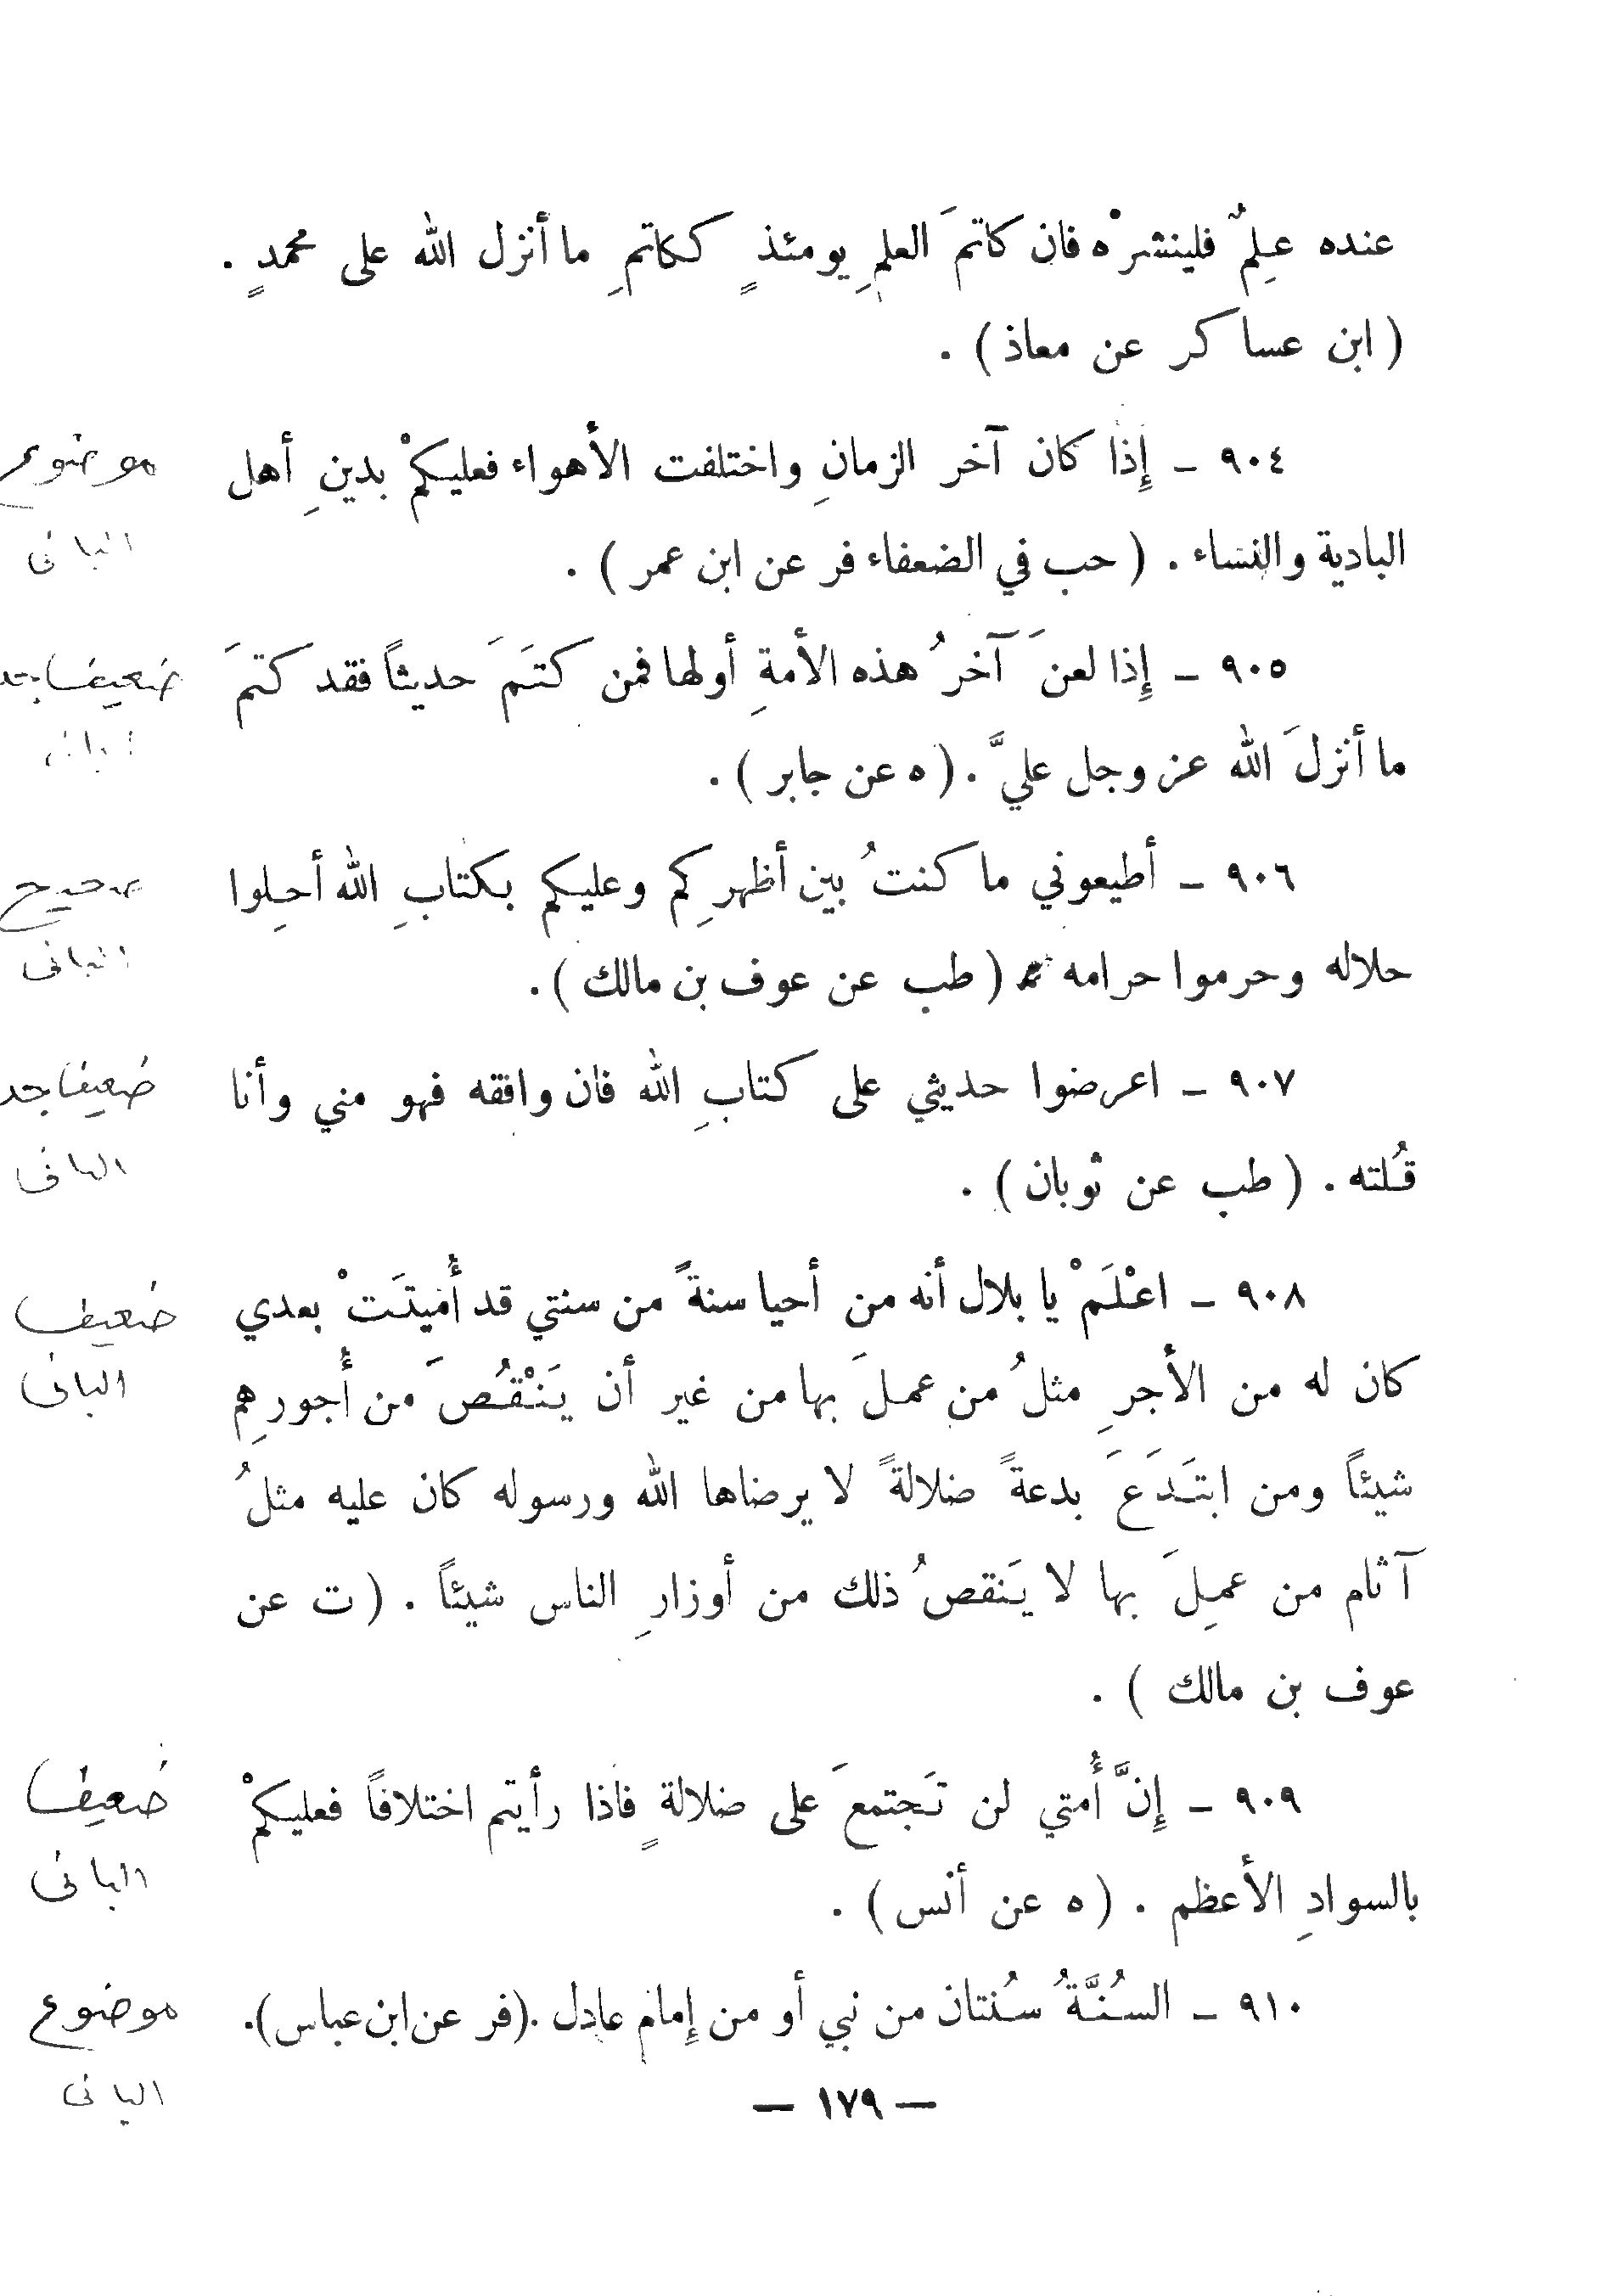 عنده عِلمٌ فلينشرْه فان كاتمَ العلمِ يومئذٍ ككاتمِ ما أنزل الله على محمدٍ .
( ابن عساكر عن معاذ ) .
٩٠٤ ـ إِذا كان آخر الزمانِ واختلفت الأهواء فعليكمْ بدينِ أهل
موضوع
البادية والنساء . ( حب في الضعفاء فر عن ابن عمر ) .
البانى
٩٠٥ ـ إِذا لعنَ آخرُ هذه الأمةِ أولها فمن كتَمَ حديثاً فقد كتمَ
ضعيف جد
ما أنزلَ الله عز وجل عليَّ . ( ه عن جابر ) .
٩٠٦ ـ أطيعوني ما كنتُ بين أظهرِكم وعليكم بكتابِ الله أحِلوا
صحيح
حلاله وحرموا حرامه ( طب عن عوف بن مالك ) .
البانى
٩٠٧ ـ اعرضوا حديثي على كتابِ الله فان وافقه فهو مني وأنا
ضعيف جد
قُلته . ( طب عن ثوبان ) .
البانى
٩٠٨ ـ اعْلَمْ يا بلال أنه من أحيا سنةً من سنتي قد أُميتَتْ بعدي
ضعيف
كان له من الأجرِ مثلُ من عملَ بها من غير أن يَنْقُصَ من أُجورِهم
البانى
شيئاً ومن ابتَدَعَ بدعةً ضلالةً لا يرضاها الله ورسوله كان عليه مثلُ
آثام من عمِلَ بها لا يَنقصُ ذلك من أوزارِ الناس شيئاً . ( ت عن
عوف بن مالك ) .
٩٠٩ ـ إِنَّ أُمتي لن تَجتمعَ على ضلالةٍ فاذا رأيتم اختلافاً فعليكمْ
ضعيف
بالسوادِ الأعظم . ( ه عن أنس ) .
البانى
٩١٠ ـ السُنَّةُ سُنتان من نبي أو من إِمام عادل .( فر عن ابن عباس ).
موضوع
البانى
— ١٧٩ —